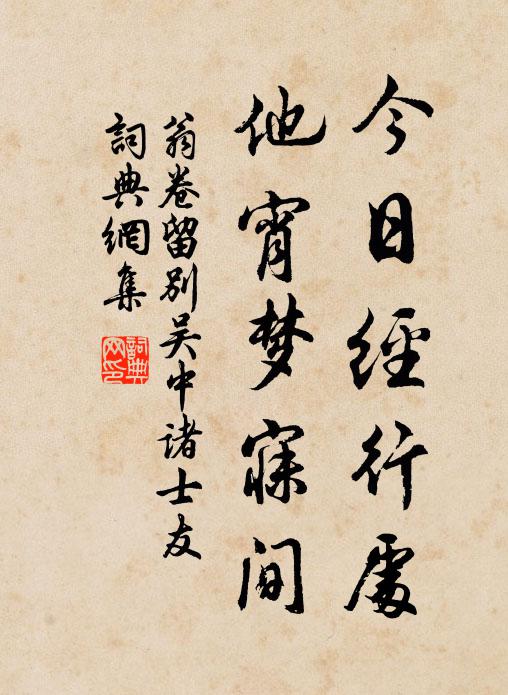 今日經行處
他宵梦寐间
翁卷留别吴中诸士友
詞典網集
詞典網印